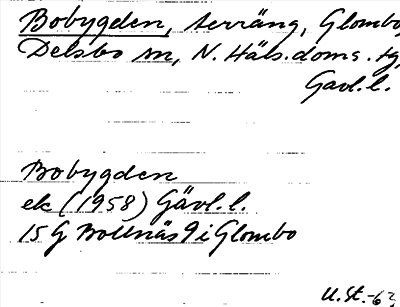 Bobygden, terräng, Glombo,
Delsbo sn, N. Häls. doms. tg,
Gävl. l.
Bobygden
ek (1958) Gävl. l.
15 G Bollnäs 9 i Glombo
U. St. -62